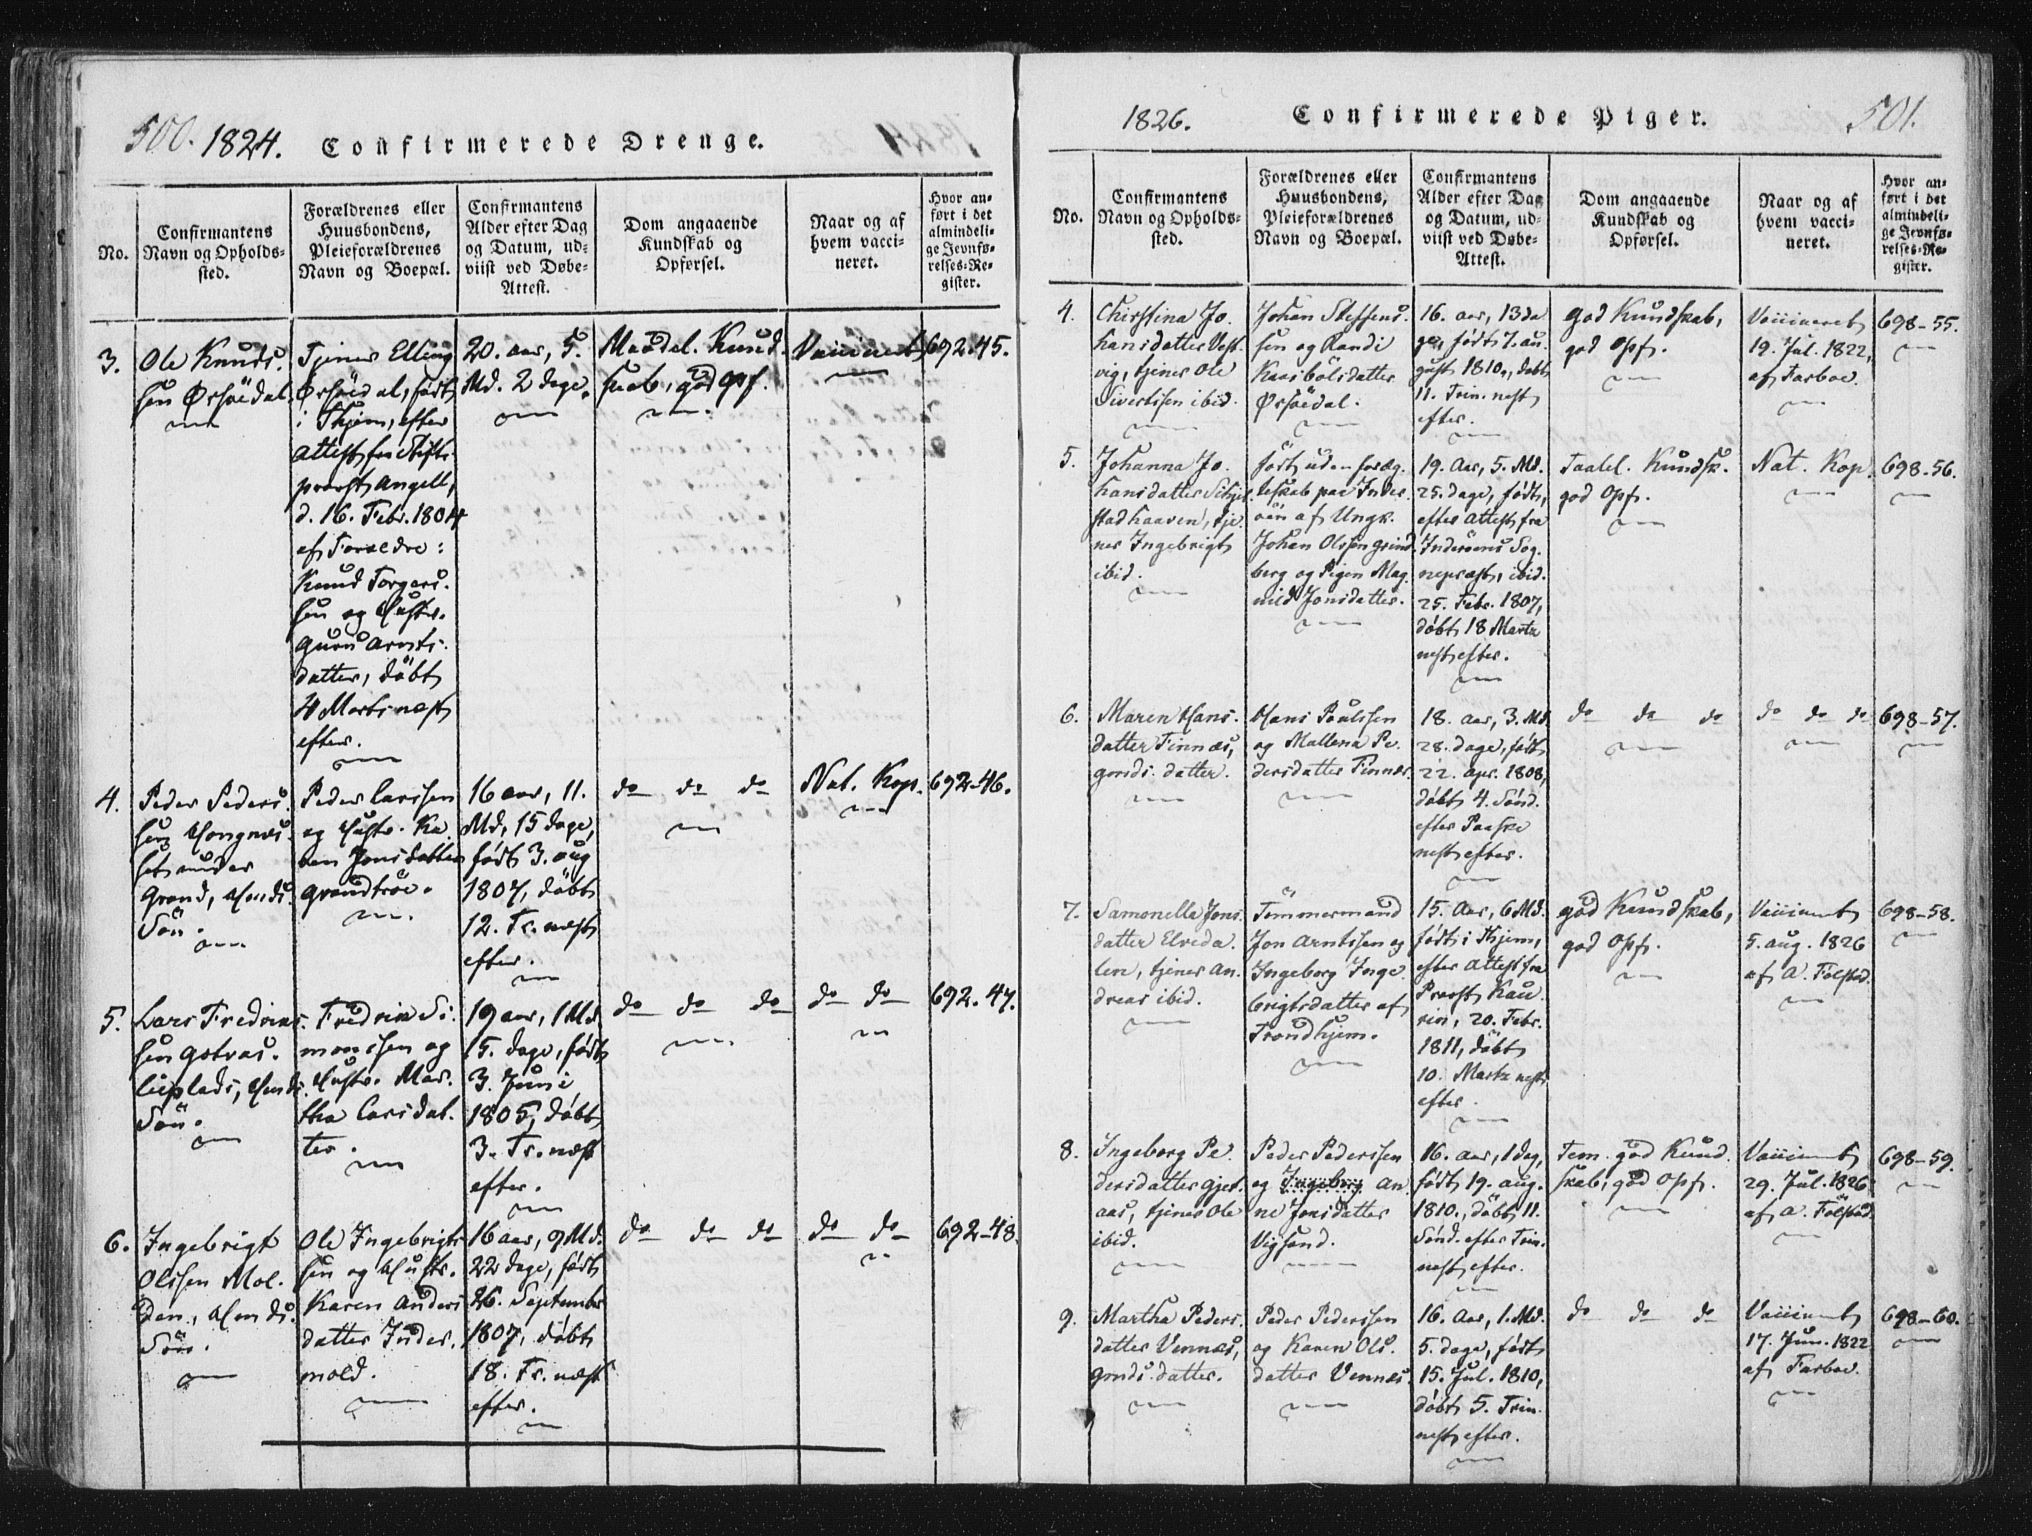 500. 1824. Confirmerede Drenge.
No.
Confirmantens
Navn og Opholds-
sted.
Forældrenes eller
Huusbondens,
Pleieforældrenes
Navn og Boepæl.
Confirmantens
Alder efter Dag
og Datum, ud-
viist ved Døbe-
Attest.
Dom angaaende
Kundskab og
Opførsel.
Naar og af
hvem vacci-
neret.
Hvor an-
ført i det
almindeli-
ge Jevnfø-
relses-Re-
gister.
3.
Ole Knuds.
sen Ørsöedal.
Tjener Elling
Ørsöedal, födt
i Thjem, efter
attest fra Stifts-
provst Angell,
d. 16. Febr. 1804
af Forældre:
Knud Torgers.
sen og Hustr.
Guru Arnts-
datter, döbt
4 Marts næst
efter.
20. aar, 5.
Md. 2 dage.
Maadel. Kund-
skab, god Opf.
Vaccineret
692-45.
4.
Peder Peders.
sen
under
Grand,
Sön.
Peder Larssen
og Hustr. Ka
ren Jonsdatter
16 aar, 11.
Md, 15 dage,
födt 3. Aug
1807, döbt
12. Tr. næst
efter.
do do do
Nat. Kop.
692-46.
5.
Lars Fredriks.
sen
Sön.
Fredrik Si.
monssen og
Hustr. Mar.
tha Larsdat.
ter.
19 aar, 1 Md.
15. dage, födt
3. Juni
1805, döbt
3. Tr. næst
efter.
do do do
do do
692-47.
6.
Ingebrigt
Olssen Mol.
den,
Sön.
Ole Ingebrigts
sen og Hustr.
Karen Anders
datter Inder.
mold.
16 aar, 9 Md.
22 dage, födt
26. September
1807, döbt
18. Tr. næst
efter.
do do do
do do
692-48.
1826. Confirmerede Piger. 501.
No.
Confirmantens
Navn og Opholds-
sted.
Forældrenes eller
Huusbondens,
Pleieforældrenes
Navn og Boepæl.
Confirmantens
Alder efter Dag
og Datum, ud-
viist ved Døbe-
Attest.
Dom angaaende
Kundskab og
Opførsel.
Naar og af
hvem vacci-
neret.
Hvor an-
ført i det
almindeli-
ge Jevnfø-
relses-Re-
gister.
4.
Christina Jo.
hansdatter Vest.
vig, tjener Ole
Sivertsen ibid.
Johan Steffens.
sen og Randi
datter
Ørsöedal.
16. aar, 13 da
ge, födt 7. Au.
gust 1810, döbt
11. Trin. nest
efter.
god Kundskab,
god Opf.
Vaccineret
19. Jul. 1822,
af Farboe.
698-55.
5.
Johanna Jo.
hansdatter
tje
ner Ingebrigt
ibid.
födt uden for Æg.
teskab paa Inder.
öen af Ungk.
Johan Olssen Grind
berg og Pigen Mag.
nild Jonsdatter.
19. Aar, 5. Md.
25. dage, födt,
efter Attest fra
Inderöens Sog.
nepræst, ibid.
25. Febr. 1807,
döbt 18 Marts
nest efter.
Taalel. Kundsk.
god Opf.
Nat. Kop.
698-56.
6.
Maren Hans.
datter Finnæs,
gmds. datter.
Hans Poulssen
og Mallena Pe.
dersdatter Finnæs.
18. aar, 3. Md.
28. dage, födt
22. Apr. 1808,
döbt 4. Sönd.
efter Paaske
nest efter.
do do do
do do do
698-57.
7.
Samonella Jons
datter Elveda.
len, tjener An.
dreas ibid.
Tömmermand
Jon Arntssen og
Ingeborg Inge
brigtsdatter af
Trondhjem.
15. Aar, 6 Md.
födt i Thjem,
efter Attest fra
Provst Kau.
rin, 20. Febr.
1811, döbt
10. Marts nest
efter.
god Kundskab,
god Opf.
Vaccineret
5. Aug. 1826
af A. Fölstad.
698-58.
8.
Ingeborg Pe.
dersdatter
aas, tjener Ole
ibid.
Peder Pederssen
og Ingeborg An
ne Jonsdatter
Vigsand.
16. aar, 1 dag,
födt 19. Aug.
1810., döbt 11.
Sönd. efter Trin.
nest efter.
Tem. god Kund.
skab, god Opf.
Vaccineret
29. Jul. 1826
af A. Fölstad.
698-59.
9.
Martha Peders.
datter Vennæs,
gmds. datter.
Peder Pederssen
og Karen Ols.
datter Vennæs.
16. Aar, 1. Md.
5. dage, födt
15. Jul. 1810,
döbt 5. Trin.
nest efter.
do do do
Vaccineret
17. Jun. 1822
af Farboe.
698-60.